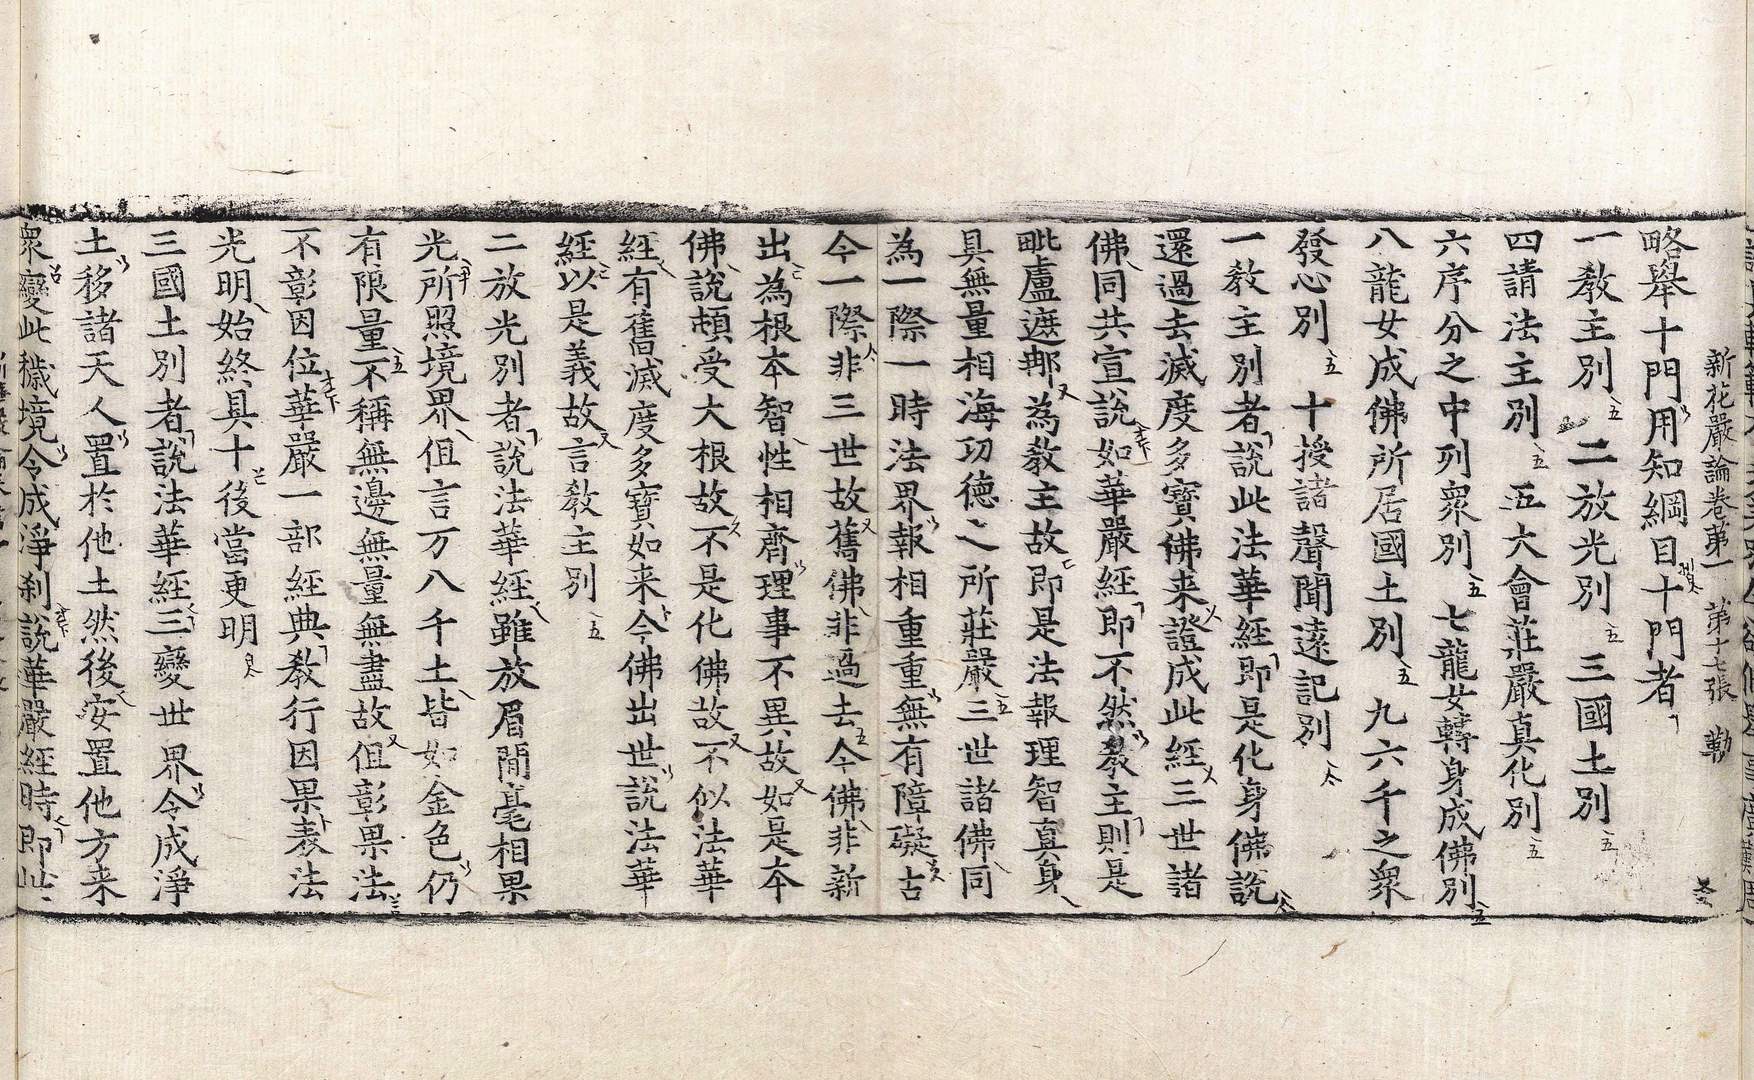 新花嚴論卷第一 第十七張 勤
略舉十門用知綱目十門者
一教主別 二放光別 三國土別
四請法主別 五大會莊嚴真化別
六序分之中列衆別 七龍女轉身成佛別
八龍女成佛所居國土別 九六千之衆
發心別 十授諸聲聞遠記別
一教主別者說此法華經即是化身佛說
還過去滅度多寶佛来證成此經三世諸
佛同共宣說如華嚴經即不然教主則是
毗盧遮那為教主故即是法報理智真身
具無量相海功德之所莊嚴三世諸佛同
為一際一時法界報相重重無有障礙古
今一際非三世故舊佛非過去今佛非新
出為根本智性相齊理事不異故如是本
佛說頓受大根故不是化佛故不似法華
經有舊滅度多寶如来今佛出世說法華
經以是義故言教主別
二放光別者說法華經雖放眉間毫相果
光所照境界但言万八千土皆如金色仍
有限量不稱無邊無量無盡故但彰果法
不彰因位華嚴一部經典教行因果表法
光明始終具十後當更明
三國土別者說法華經三變世界令成淨
土移諸天人置於他土然後安置他方来
衆變此穢境令成淨刹說華嚴經時即此